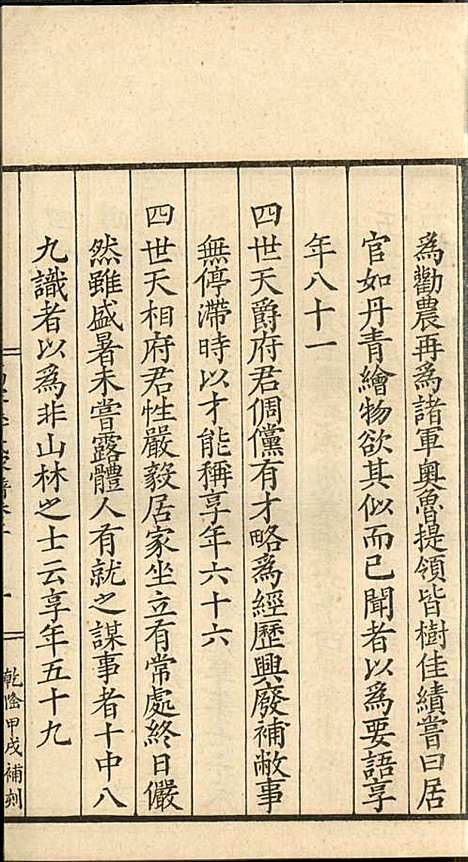 為勸農再為諸軍奥魯提領皆樹佳績嘗曰居
官如丹青繪物欲其似而已聞者以為要語享
年八十一
四世天爵府君倜儻有才略為經歷興廢補敝事
無停滯時以才能稱享年六十六
四世天相府君性嚴毅居家坐立有常處終日儼
然雖盛暑未嘗露體人有就之謀事者十中八
九識者以為非山林之士云享年五十九
乾隆甲戌補刻